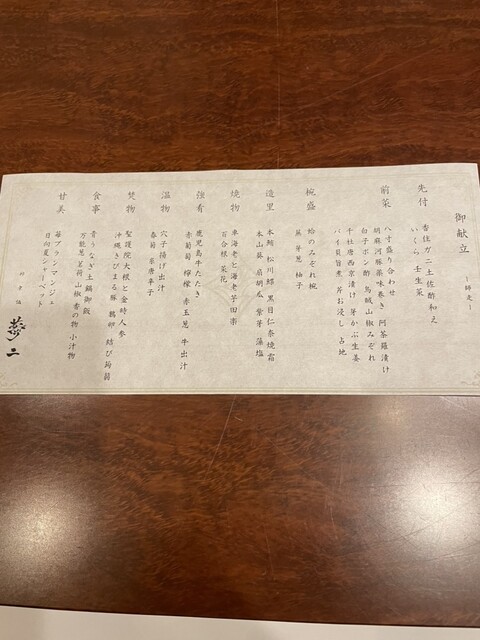 御献立
～師走～
先付
香住ガニ土佐酢和え
いくら 壬生菜
前菜
八寸盛り合わせ
胡麻河豚薬味巻き 阿茶羅漬け
白子ポン酢 烏賊山椒みぞれ
千社唐西京漬け 芽かぶ生姜
バイ貝旨煮 芹お浸し 占地
椀盛
蛤のみぞれ椀
蕪 芽葱 柚子
造里
本鮪 松川鰈 黒目仁奈焼霜
本山葵 扇胡瓜 紫芽 藻塩
焼物
車海老と海老芋田楽
百合根 菜花
強肴
鹿児島牛たたき
赤葡萄 檸檬 赤玉葱 牛出汁
温物
穴子揚げ出汁
春菊 糸唐辛子
焚物
聖護院大根と金時人参
沖縄きびまる豚 鶉卵 結び蒟蒻
食事
青うなぎ土鍋御飯
万能葱 茗荷 山椒 香の物 小汁物
甘美
苺ブランマンジェ
日向夏シャーベット